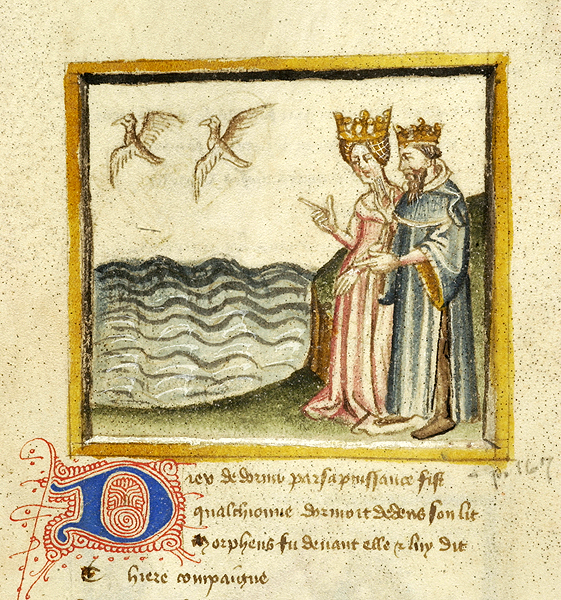 Diex de dormir par sa puissance fist
qualchionie dormoit dedens son lit
Morpheus fu deuant elle & luy dit
Chiere compaigne